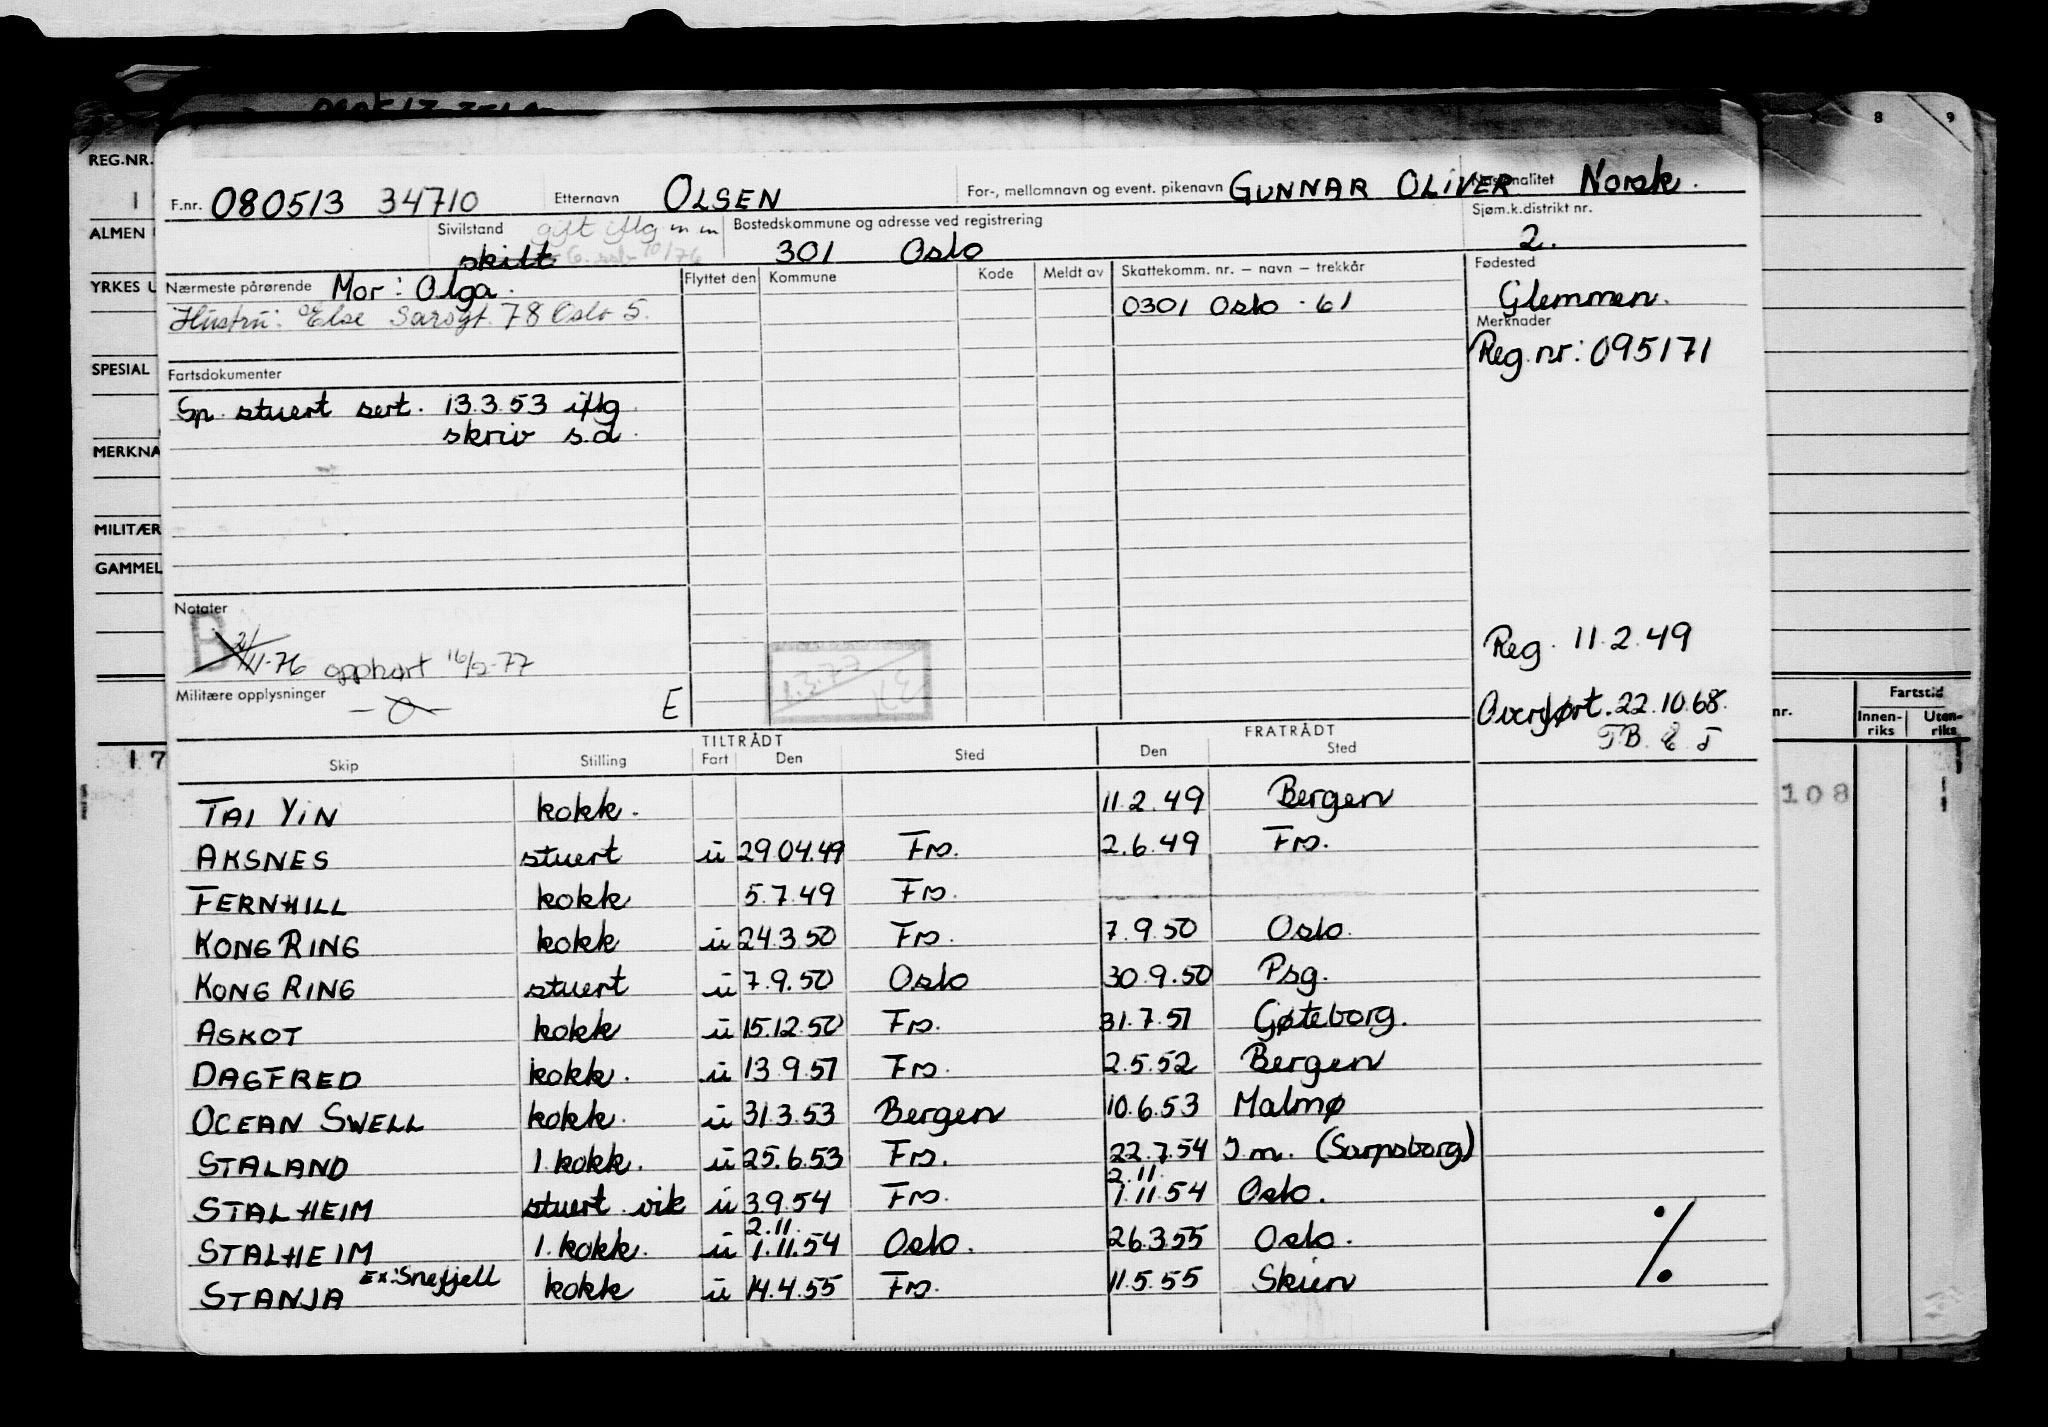 8 9
REG.NR.
F.nr. 080513 34710 Etternavn OLSEN For-, mellomnavn og event. pikenavn GUNNAR OLIVER Nasjonalitet Norsk.
ALMEN
Sivilstand skilt gift iflg Bostedskommune og adresse ved registrering 301 Oslo Sjøm.k.distrikt nr. 2.
YRKES U
Nærmeste pårørende Mor: Olga. Flyttet den Kommune Kode Meldt av Skattekomm. nr. – navn – trekkår Fødested
Hustru: Else Sarsgt. 78 Oslo 5. 0301 Oslo - 61 Glemmen.
Merknader
Reg.nr: 095171
SPESIAL
Fartsdokumenter
Sp. stuert sert. 13.3.53 iflg.
skriv s.d.
MERKNA
MILITÆR
GAMMEL
Notater
B
-76 opphørt 16/2-77
1.3.77
Reg. 11.2.49
Militære opplysninger E
Overført. 22.10.68.
Fartstid
nr. Innen-riks Uten-riks
TILTRÅDT FRATRÅDT
Skip Stilling Fart Den Sted Den Sted
17
TAI YIN kokk. 11.2.49 Bergen
108
AKSNES stuert u 29.04.49 Fro. 2.6.49 Fro.
FERNHILL kokk 5.7.49 Fro.
KONG RING kokk u 24.3.50 Fro. 7.9.50 Oslo.
KONG RING stuert u 7.9.50 Oslo 30.9.50 Psg.
ASKOT kokk u 15.12.50 Fro. 31.7.51 Gøteborg.
DAGFRED kokk. u 13.9.51 Fro. 2.5.52 Bergen
OCEAN SWELL kokk. u 31.3.53 Bergen 10.6.53 Malmø
STALAND 1. kokk. u 25.6.53 Fro. 22.7.54 I.m. (Sarpsborg)
STALHEIM stuert vik u 3.9.54 Fro. 2.11. 1.11.54 Oslo.
STALHEIM 1. kokk. u 2.11. 1.11.54 Oslo. 26.3.55 Oslo.
STANJA Ex: Snefjell kokk u 14.4.55 Fro. 11.5.55 Skien
%